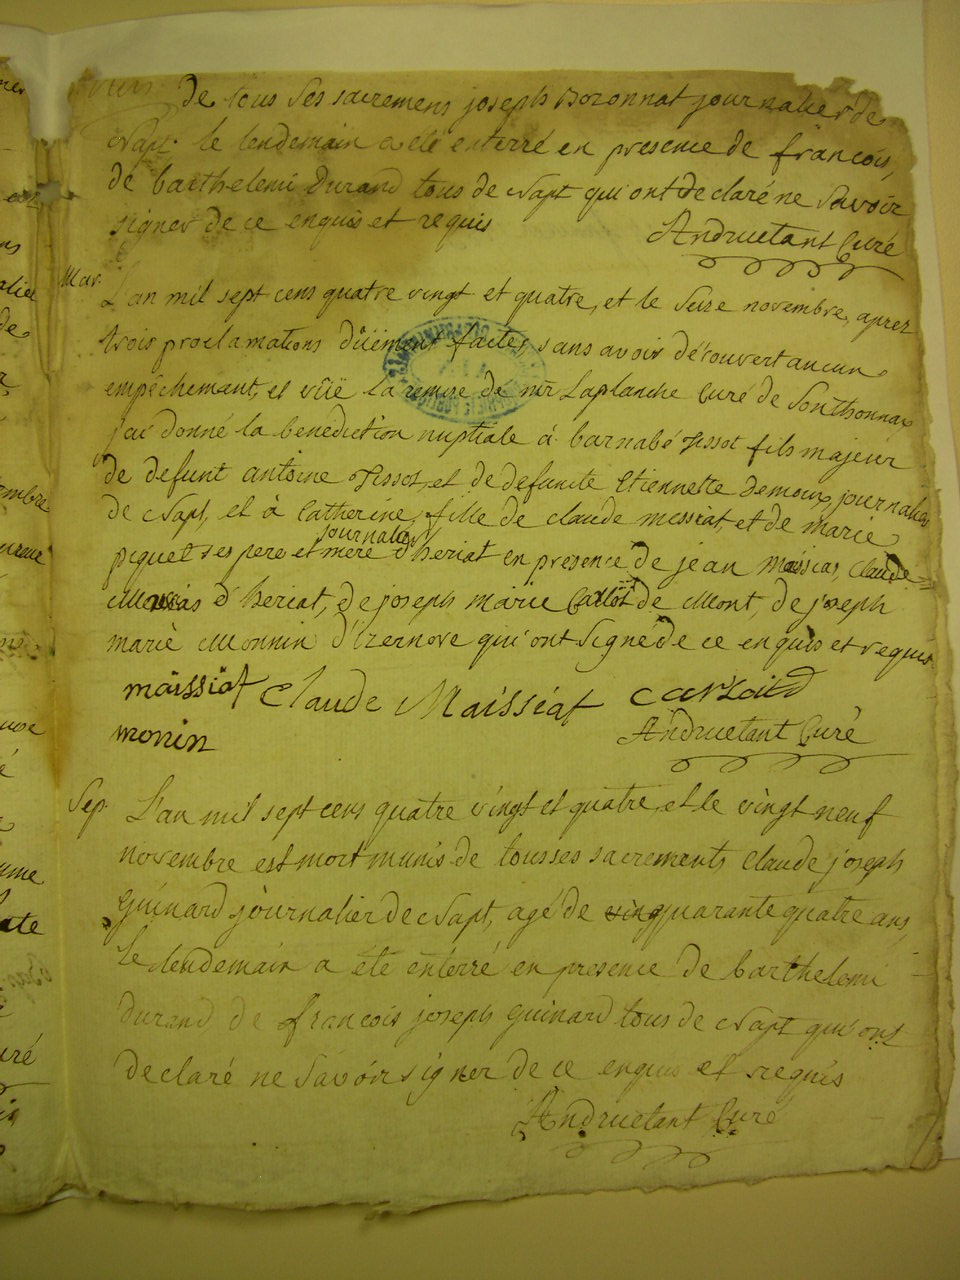 de tous ses sacremens joseph Bozonnat journalier de
Napt. le lendemain a été enterré en presence de françois,
de barthelemi Durand tous de Napt qui ont declaré ne savoir
signer de ce enquis et requis
Andruetant Curé
Mar.
L'an mil sept cens quatre vingt et quatre, et le seize novembre, aprez
trois proclamations düëment faites sans avoir découvert aucun
empêchement, et vûë la remise de mr Laplanche Curé de Sonthonnax
j'ai donné la benediction nuptiale à barnabé Tissot fils majeur
de defunt antoine Tissot, et de defunte Etiennette Demoux, journalier
de Napt, et à Catherine, fille de claude messiat, et de marie
journaliers
piquet ses pere et mere d'heriat en presence de jean massias, Claude
Massias d'heriat, de joseph marie de Mont, de joseph
marie Monnin d'Izernore qui ont signé de ce enquis et requis
maissiat Claude Maissiat
monin
Andruetant Curé
Sep.
L'an mil sept cens quatre vingt et quatre, et le vingt neuf
novembre est mort munis de tous ses sacrements Claude joseph
Guinard journalier de Napt, agé de quarante quatre ans,
le lendemain a été enterré en presence de barthelemi
durand de francois joseph guinard tous de Napt qui ont
declaré ne savoir signer de ce enquis et requis
Andruetant Curé